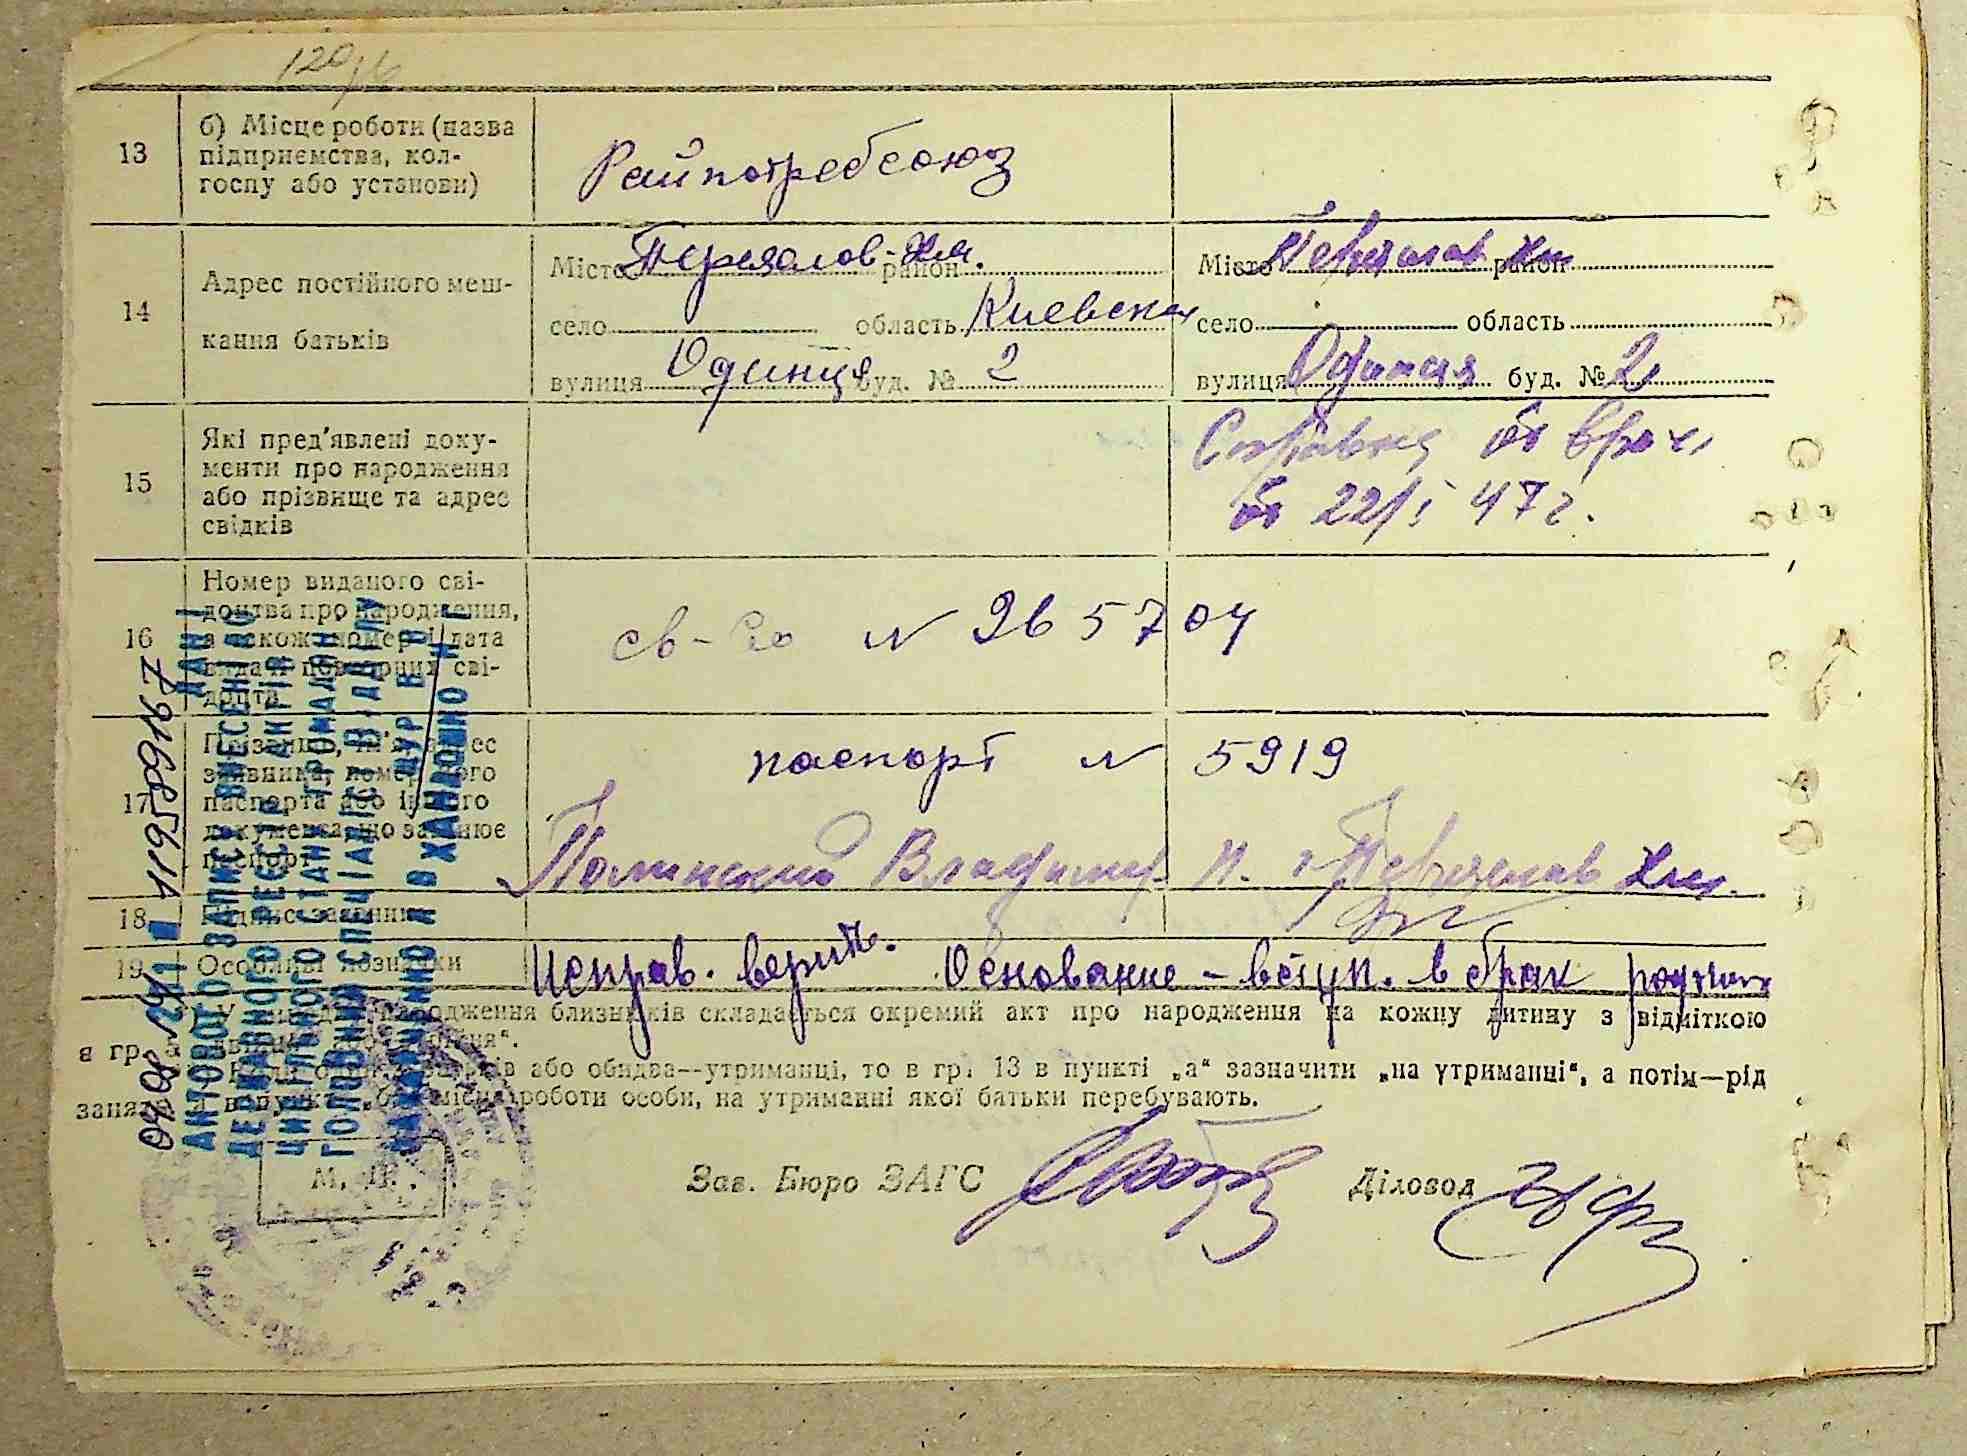 120
13
б) Місце роботи (назва
підприємства, кол-
госпу або установи)
Райпотребсоюз
14
Адрес постійного меш-
кання батьків
Місто Переяслов-Хм. район
село область Киевская
вулиця Одинця буд. № 2
Місто Переяслав Хм район
село область
вулиця Одинця буд. № 2
15
Які пред'явлені доку-
менти про народження
або прізвище та адрес
свідків
Справка от врача
от 22/I 47 г.
16
Номер виданого сві-
доцтва про народження,
а також номер і дата
видачі повторних сві-
доцтв
св-во N 265704
17
Прізвище, ім'я, адрес
заявника, номер його
паспорта або іншого
документа, що замінює
паспорт
паспорт N 5919
Владимир И. г. Переяслав Хм.
18
Підпис заявника
19
Особливі познаки
Исправ. верить. Основание - вступ. в брак родителей
У випадку народження близнюків складається окремий акт про народження на кожну дитину з відміткою
в гр.
або обидва—утриманці, то в гр. 13 в пункті „а“ зазначити „на утриманні“, а потім—рід
роботи особи, на утриманні якої батьки перебувають.
М. П.
Зав. Бюро ЗАГС
Діловод
ДАНІ
АКТОВОГО ЗАПИСУ ВНЕСЕНІ ДО
ДЕРЖАВНОГО РЕЄСТРУ АКТІВ
ЦИВІЛЬНОГО СТАНУ ГРОМАДЯН
ГОЛОВНИЙ СПЕЦІАЛІСТ ВІДДІЛУ